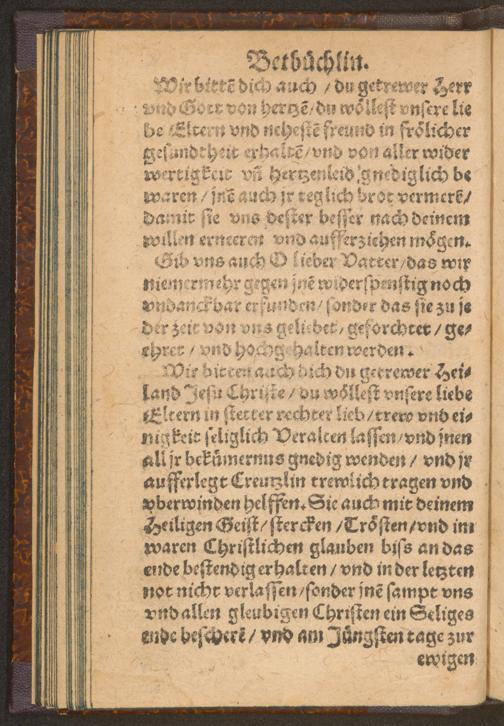 Betbüchlin.
Wir bittẽ dich auch / du getrewer Herr
vnd Gott von hertzẽ/du wöllest vnsere lie
be Eltern vnd nehestẽ freund in frölicher
gesundtheit erhaltẽ/vnd von aller wider
wertigkeit vñ hertzenleid gnediglich be
waren / jnẽ auch jr teglich brot vermerẽ/
damit sie vns dester besser nach deinem
willen erneeren vnd aufferziehen mögen.
Gib vns auch O lieber Vatter/das wir
niemermehr gegen jnẽ widerspenstig noch
vndanckbar erfunden/sonder das sie zu je
der zeit von vns geliebet/ geforchtet / ge-
ehret / vnd hochgehalten werden.
Wir bitten auch dich du getrewer Hei-
land Jesu Christe / du wöllest vnsere liebe
Eltern in stetter rechter lieb/trew vnd ei-
nigkeit seliglich Veralten lassen/vnd jnen
all jr bekümernus gnedig wenden / vnd jr
aufferlegt Creutzlin trewlich tragen vnd
vberwinden helffen. Sie auch mit deinem
Heiligen Geist/stercken /Trösten/vnd im
waren Christlichen glauben biss an das
ende bestendig erhalten / vnd in der letzten
not nicht verlassen/sonder jnẽ sampt vns
vnd allen gleubigen Christen ein Seliges
ende bescherẽ / vnd am Jüngsten tage zur
ewigen